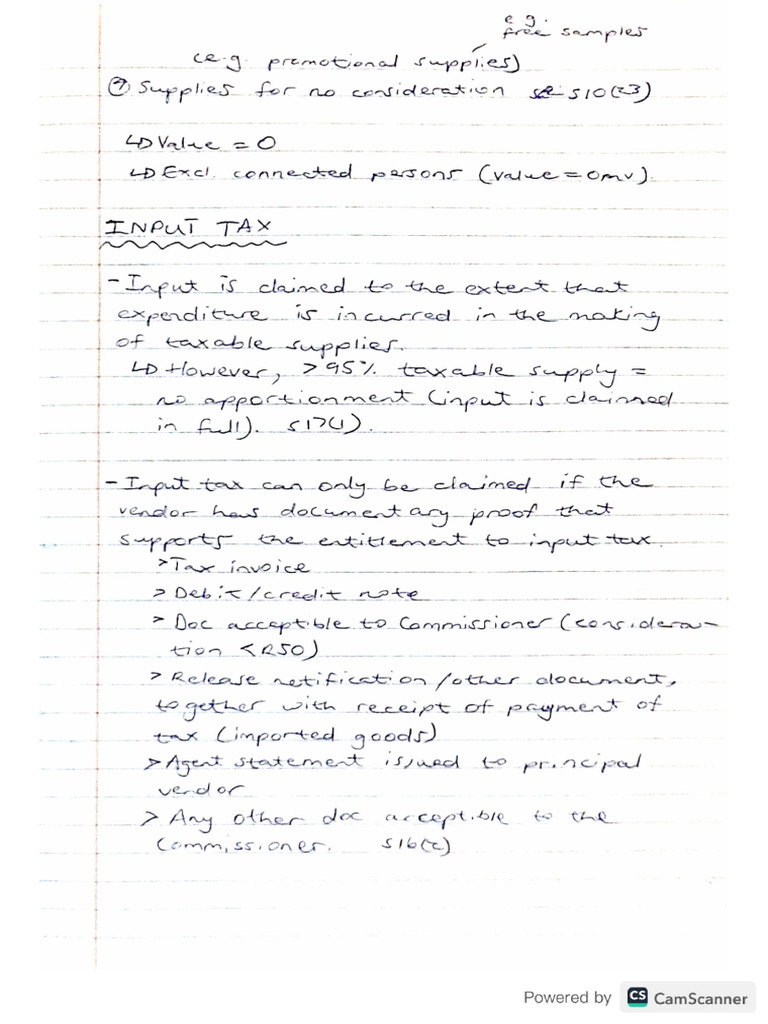 e.g.
free samples
(e.g. promotional supplies)
⑦ Supplies for no consideration s10(23)
↳ Value = 0
↳ Excl. connected persons (value = omv).
INPUT TAX
- Input is claimed to the extent that
expenditure is incurred in the making
of taxable supplies.
↳ However, >95% taxable supply =
no apportionment (input is claimed
in full). s17(1).
- Input tax can only be claimed if the
vendor has documentary proof that
supports the entitlement to input tax.
> Tax invoice
> Debit/credit note
> Doc acceptible to Commissioner (considera-
tion <R50)
> Release notification/other document,
together with receipt of payment of
tax (imported goods)
> Agent statement issued to principal
vendor
> Any other doc acceptible to the
Commissioner. s16(2)
Powered by CS CamScanner